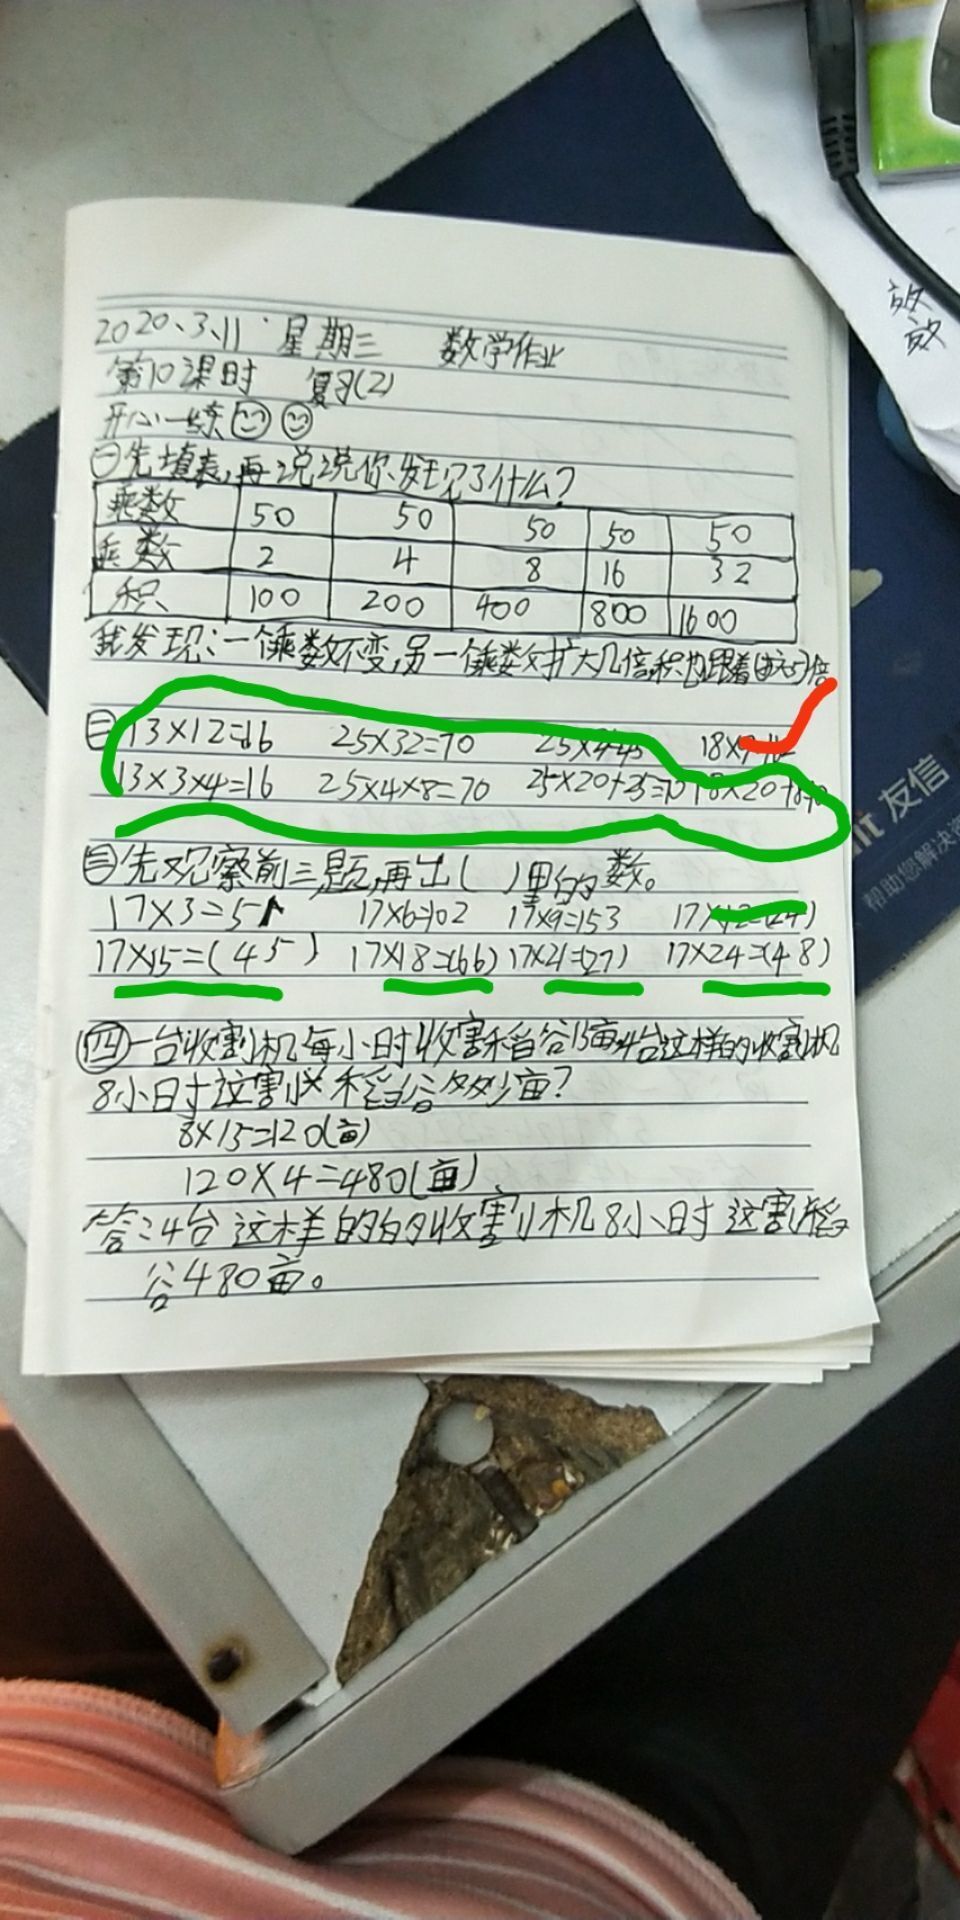 2020、3、11 星期三 数学作业
第10课时 复习(2)
开心一练
一先填表,再说说你发现了什么?
乘数 50 50 50 50 50
乘数 2 4 8 16 32
积 100 200 400 800 1600
我发现:一个乘数不变,另一个乘数扩大几倍,积也跟着扩大几倍
二 13×12=16 25×32=70
13×3×4=16 25×4×8=70 25×20+25=70 18×20+18
三先观察前三题,再出( )里的数。
17×3=51 17×6=102 17×9=153 17×12=(24)
17×15=(45) 17×18=(66) 17×21=(27) 17×24=(48)
四一台收割机每小时收割稻谷15亩,4台这样的收割机
8小时这割收稻谷多少亩?
8×15=120(亩)
120×4=480(亩)
答:4台这样的的收割机8小时这割稻
谷480亩。
效
效
it 友信
帮助您解决